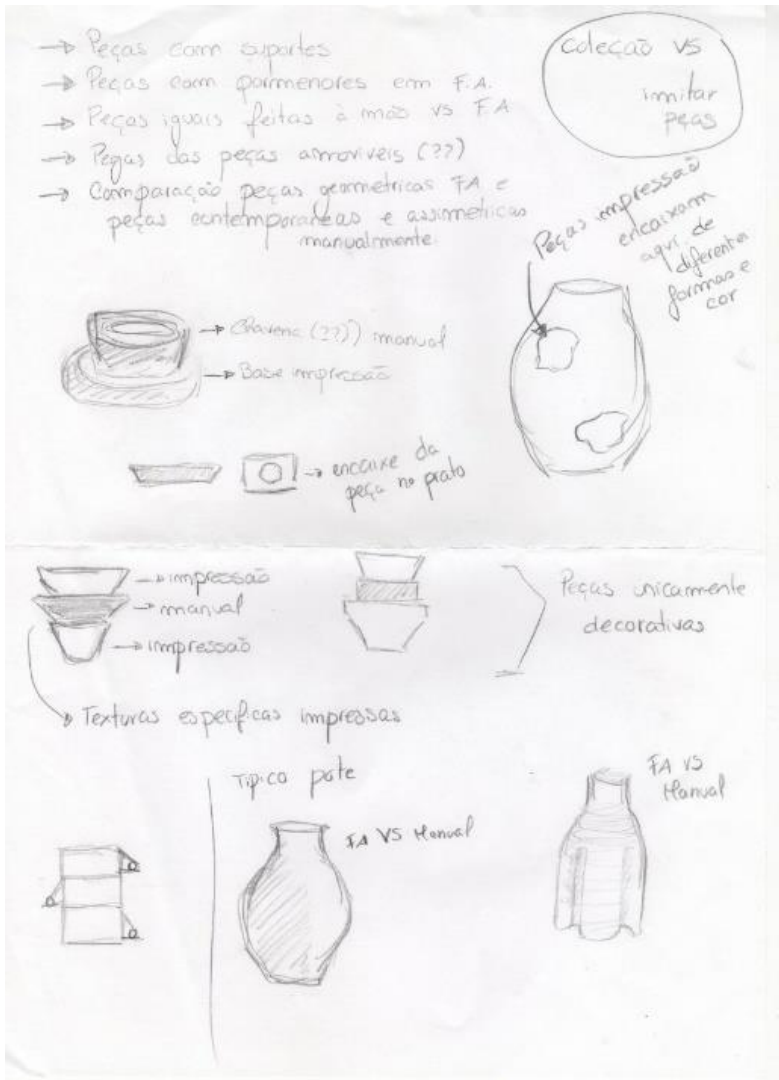 → Peças com suportes
→ Peças com pormenores em F.A.
→ Peças iguais feitas à mão vs F.A
→ Pegas das peças amovíveis (??)
→ Comparação peças geometricas FA e
peças contemporaneas e assimetricas
manualmente.
Coleção vs
imitar
peças
Peças impressão
encaixam
aqui de
diferentes
formas e
cor
→ Chavena (??) manual
→ Base impressão
→ encaixe da
peça no prato
→ impressão
→ manual
→ impressão
Peças unicamente
decorativas
Texturas especificas impressas
Tipico pote
FA VS Manual
FA VS
Manual